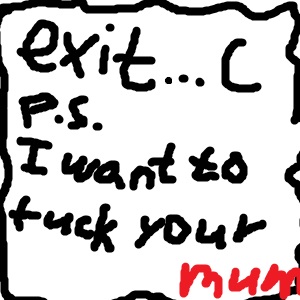 exit... C
P.S.
I want to
fuck your
mum